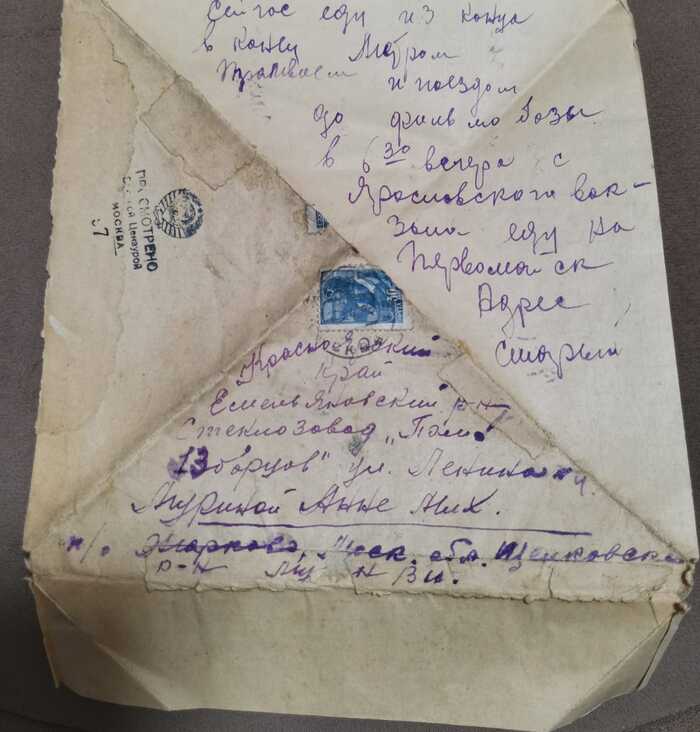 Сейчас еду из конца
в конец Метром
Трамваем и поездом
до фильмо базы
в 6 30 вечера с
Ярославского вок-
зала еду на
Первомайск
Адрес
старый
ПРОСМОТРЕНО
Военной Цензурой
МОСКВА
7
Красноярский
край
Емельяновский р-н
Стеклозавод „Пам.
13 борцов" ул. Ленина
Муриной Анне Мих.
п/о Жарково, Моск. обл. Щелковск
р-н